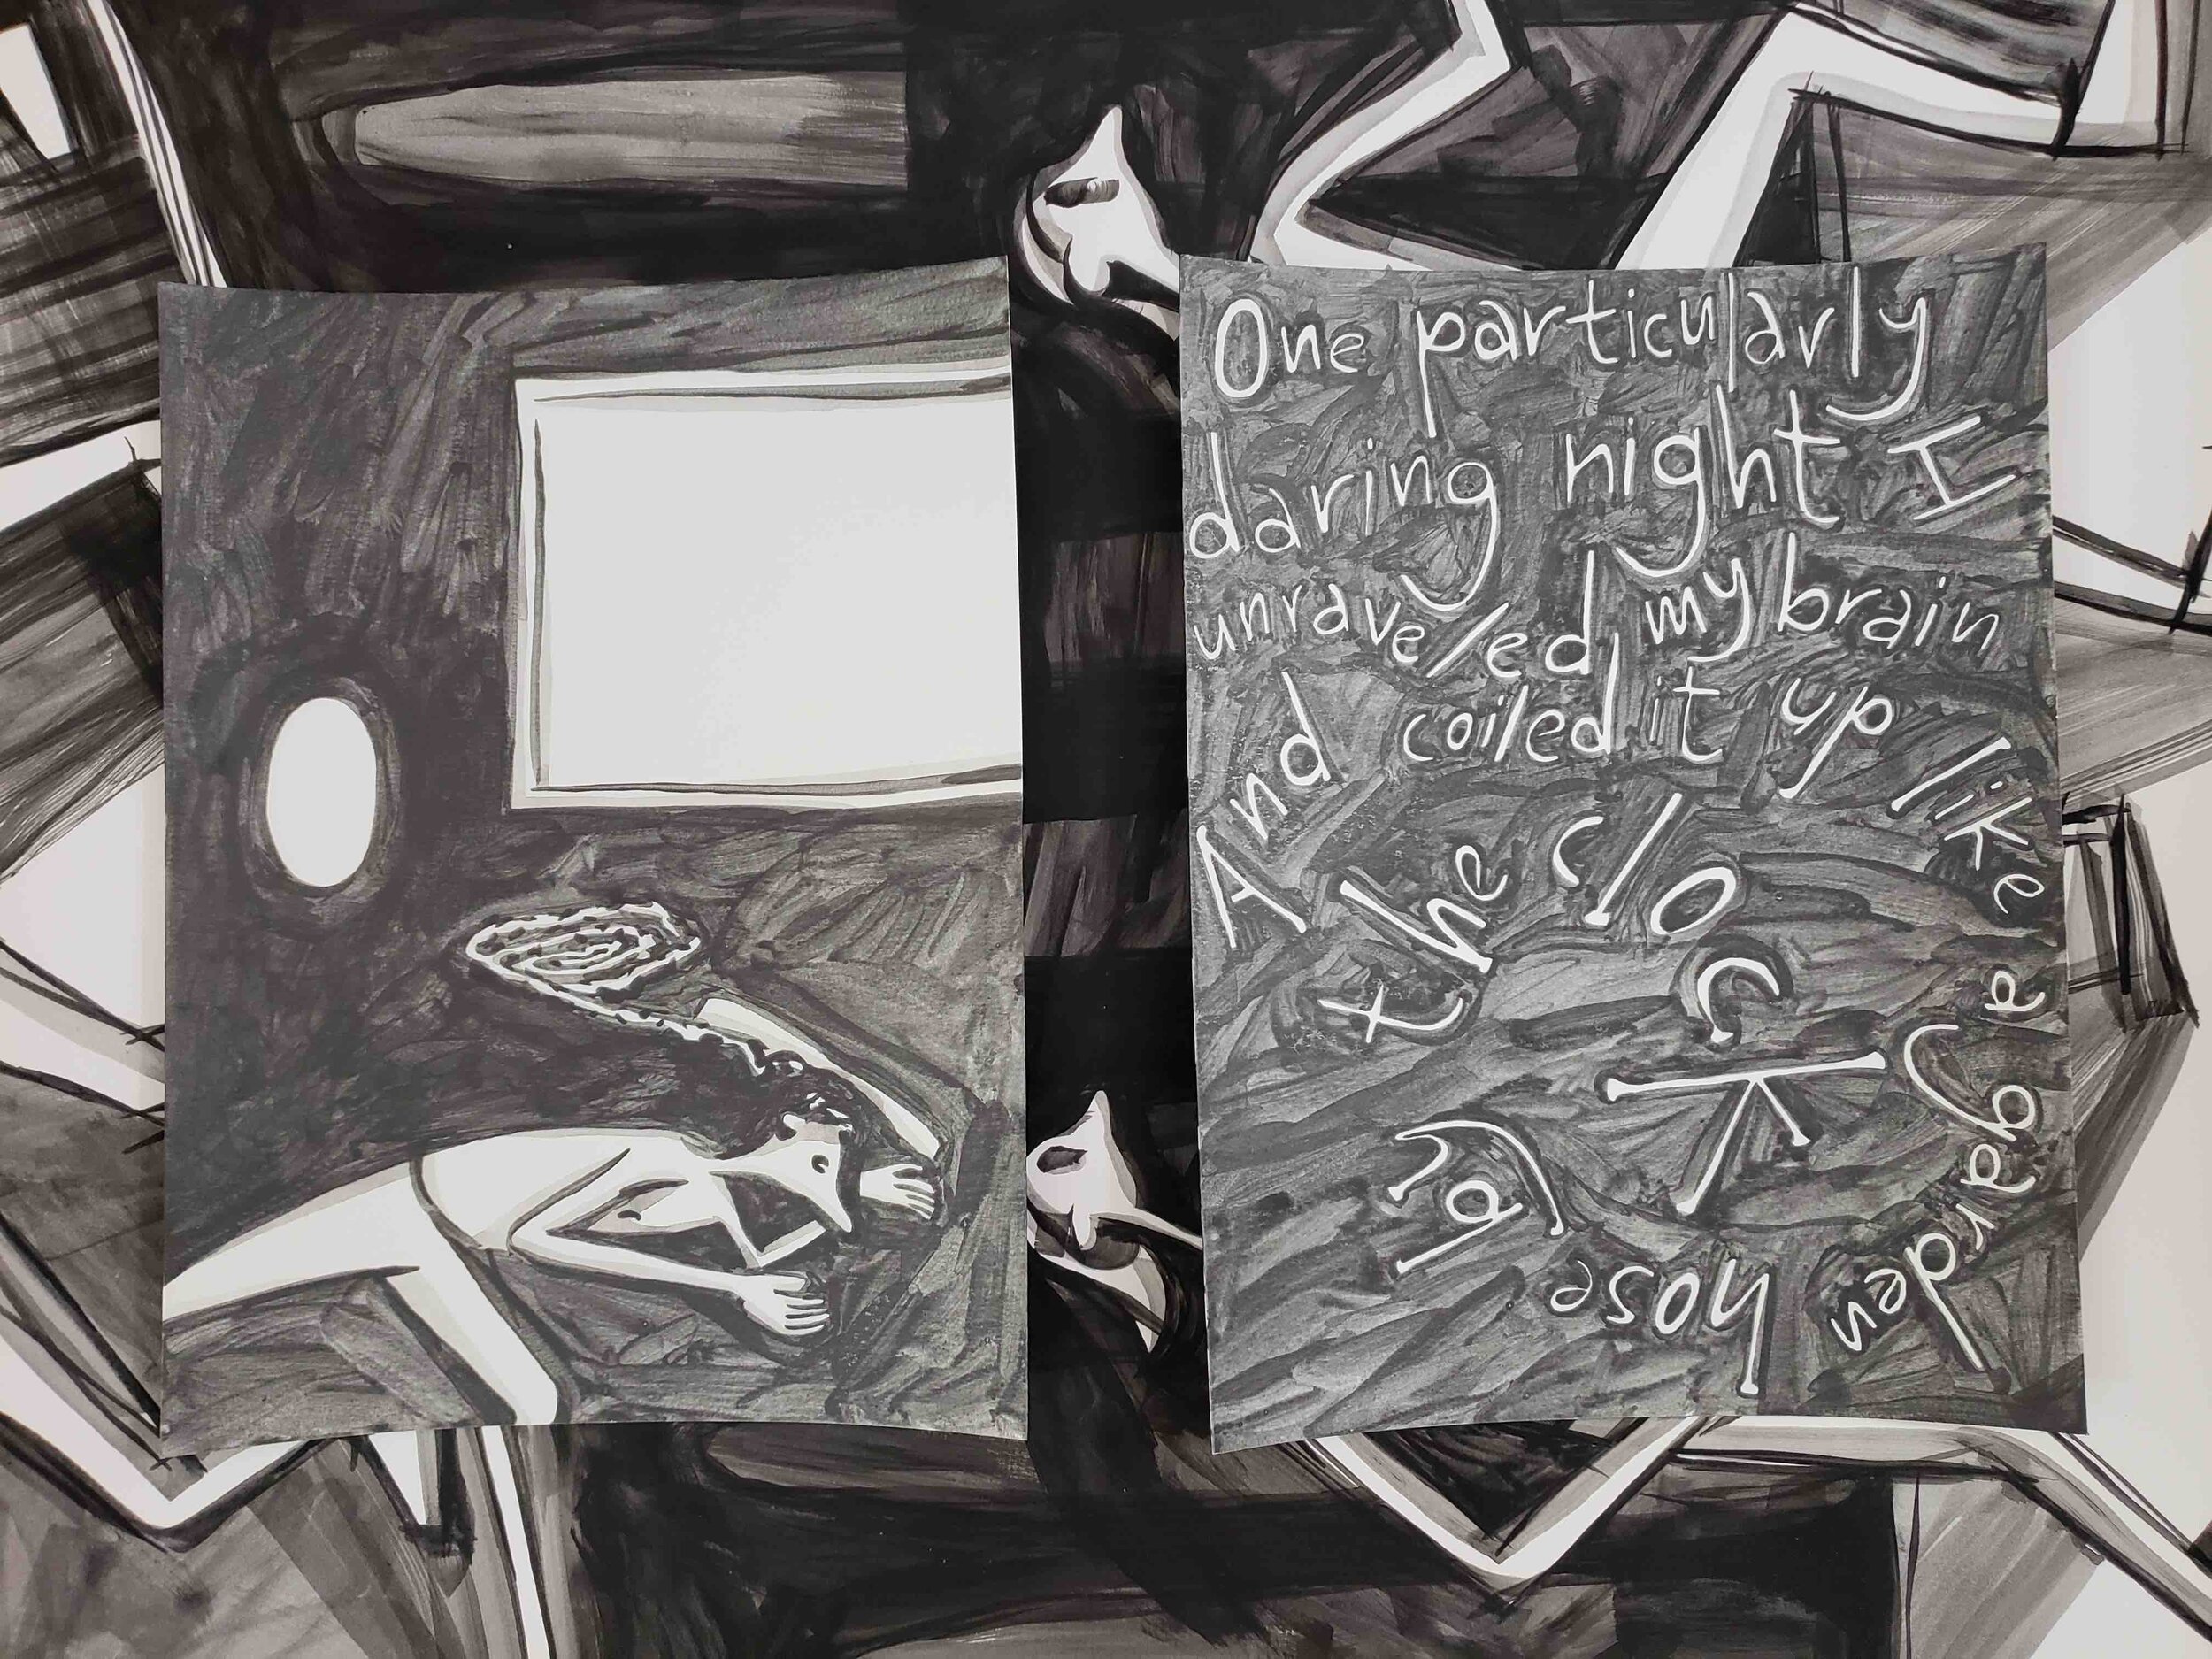 One particularly
daring night I
unraveled my brain
And coiled it up like a garden hose by the clock